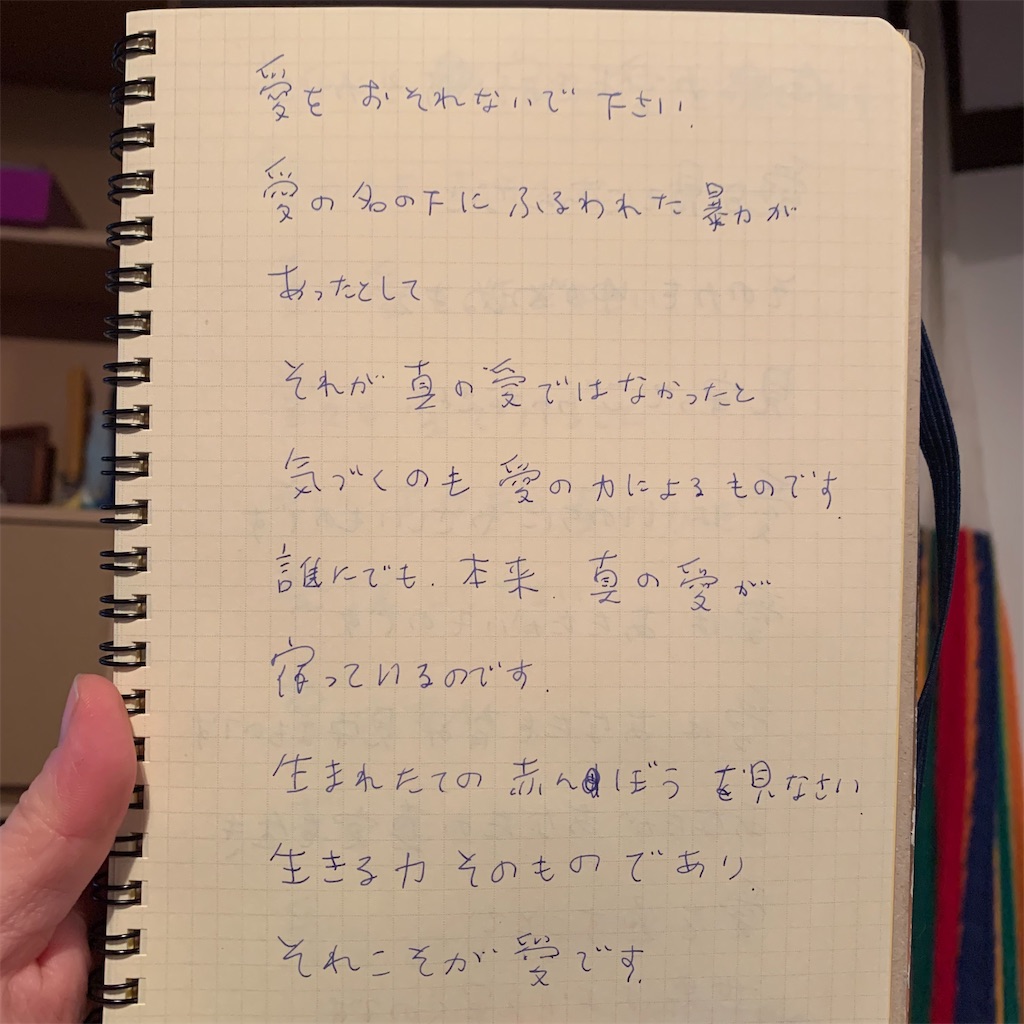 愛を おそれないで 下さい.
愛の名の下に ふるわれた 暴力が
あったとして
それが 真の愛ではなかったと
気づくのも 愛の力によるものです.
誰にでも. 本来. 真の愛が
宿っているのです.
生まれたての 赤んぼう を見なさい
生きる力 そのもの であり.
それこそが 愛です.